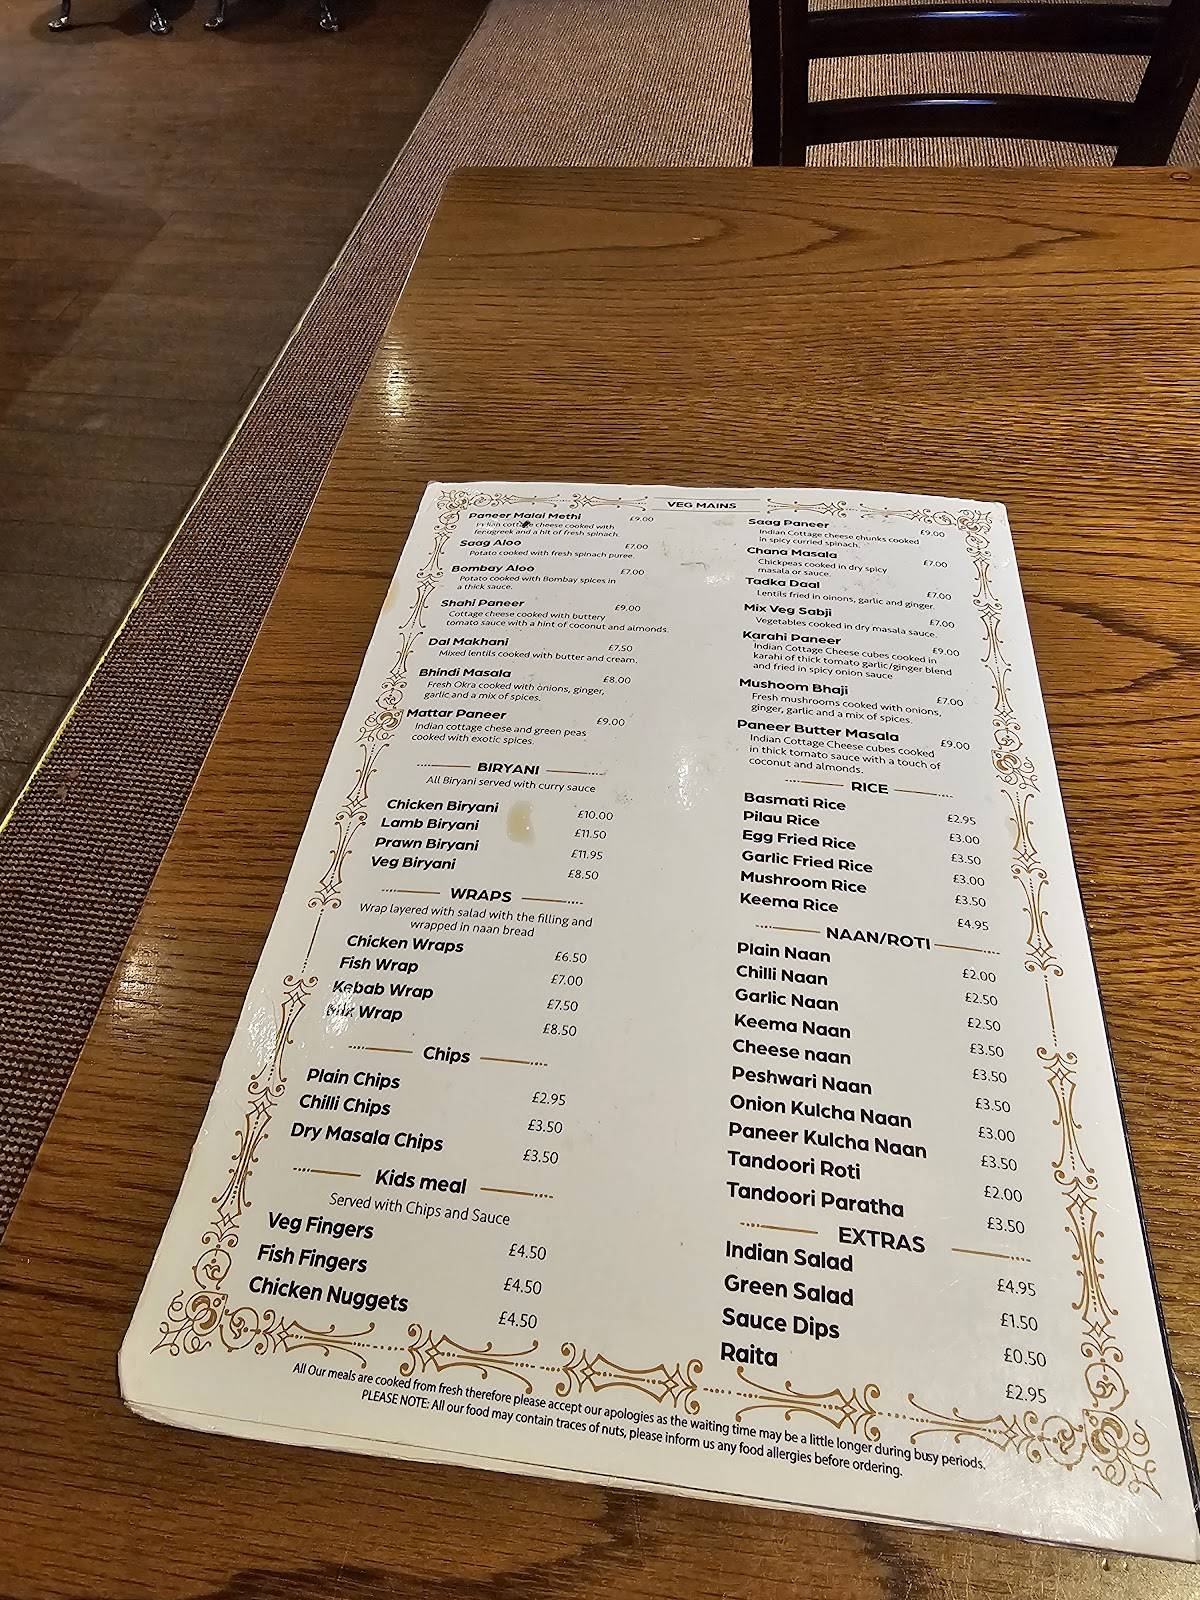 VEG MAINS
Paneer Malai Methi £9.00
Indian cottage cheese cooked with
fenugreek and a hit of fresh spinach.
Saag Aloo £7.00
Potato cooked with fresh spinach puree.
Bombay Aloo £7.00
Potato cooked with Bombay spices in
a thick sauce.
Shahi Paneer £9.00
Cottage cheese cooked with buttery
tomato sauce with a hint of coconut and almonds.
Dal Makhani £7.50
Mixed lentils cooked with butter and cream.
Bhindi Masala £8.00
Fresh Okra cooked with onions, ginger,
garlic and a mix of spices.
Mattar Paneer £9.00
Indian cottage chese and green peas
cooked with exotic spices.
BIRYANI
All Biryani served with curry sauce
Chicken Biryani £10.00
Lamb Biryani £11.50
Prawn Biryani £11.95
Veg Biryani £8.50
WRAPS
Wrap layered with salad with the filling and
wrapped in naan bread
Chicken Wraps £6.50
Fish Wrap £7.00
Kebab Wrap £7.50
Mix Wrap £8.50
Chips
Plain Chips £2.95
Chilli Chips £3.50
Dry Masala Chips £3.50
Kids meal
Served with Chips and Sauce
Veg Fingers £4.50
Fish Fingers £4.50
Chicken Nuggets £4.50
Saag Paneer £9.00
Indian Cottage cheese chunks cooked
in spicy curried spinach.
Chana Masala £7.00
Chickpeas cooked in dry spicy
masala or sauce.
Tadka Daal £7.00
Lentils fried in oinons, garlic and ginger.
Mix Veg Sabji £7.00
Vegetables cooked in dry masala sauce.
Karahi Paneer £9.00
Indian Cottage Cheese cubes cooked in
karahi of thick tomato garlic/ginger blend
and fried in spicy onion sauce
Mushoom Bhaji £7.00
Fresh mushrooms cooked with onions,
ginger, garlic and a mix of spices.
Paneer Butter Masala £9.00
Indian Cottage Cheese cubes cooked
in thick tomato sauce with a touch of
coconut and almonds.
RICE
Basmati Rice £2.95
Pilau Rice £3.00
Egg Fried Rice £3.50
Garlic Fried Rice £3.00
Mushroom Rice £3.50
Keema Rice £4.95
NAAN/ROTI
Plain Naan £2.00
Chilli Naan £2.50
Garlic Naan £2.50
Keema Naan £3.50
Cheese naan £3.50
Peshwari Naan £3.50
Onion Kulcha Naan £3.00
Paneer Kulcha Naan £3.50
Tandoori Roti £2.00
Tandoori Paratha £3.50
EXTRAS
Indian Salad £4.95
Green Salad £1.50
Sauce Dips £0.50
Raita £2.95
All Our meals are cooked from fresh therefore please accept our apologies as the waiting time may be a little longer during busy periods.
PLEASE NOTE: All our food may contain traces of nuts, please inform us any food allergies before ordering.